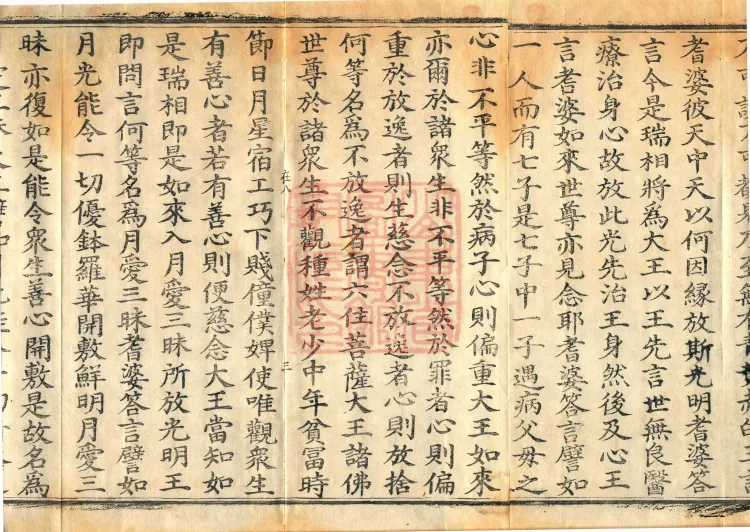 耆婆彼天中天以何因緣放斯光明耆婆答
言今是瑞相將爲大王以王先言世無良醫
療治身心故放此光先治王身然後及心王
言耆婆如來世尊亦見念耶耆婆答言譬如
一人而有七子是七子中一子遇病父母之
心非不平等然於病子心則偏重大王如來
亦爾於諸衆生非不平等然於罪者心則偏
重於放逸者則生慈念不放逸者心則放捨
何等名爲不放逸者謂六住菩薩大王諸佛
世尊於諸衆生不觀種姓老少中年貧冨時
三
節日月星宿工巧下賤僮僕婢使唯觀衆生
有善心者若有善心則便慈念大王當知如
是瑞相即是如來入月愛三昧所放光明王
即問言何等名爲月愛三昧耆婆答言譬如
月光能令一切優鉢羅華開敷鮮明月愛三
昧亦復如是能令衆生善心開敷是故名爲